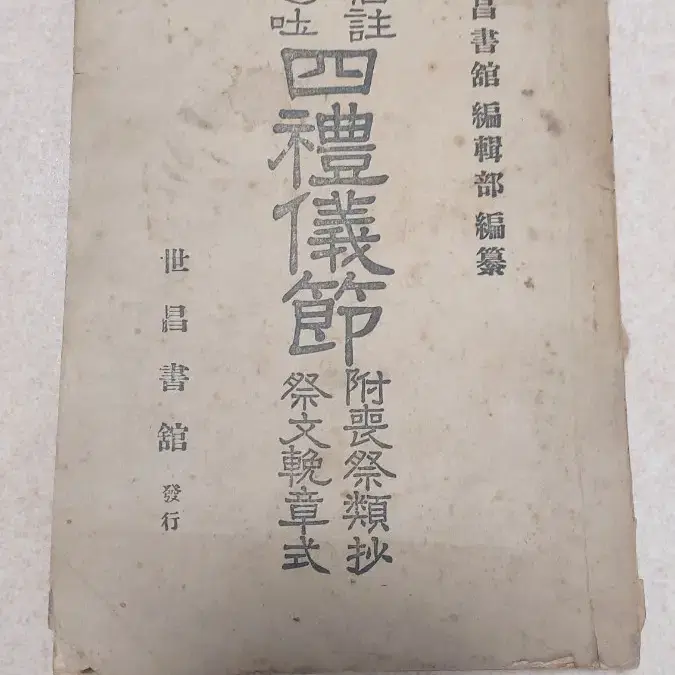 昌書舘編輯部編纂
註
吐
四禮儀節
附喪祭類抄
祭文輓章式
世昌書舘 發行